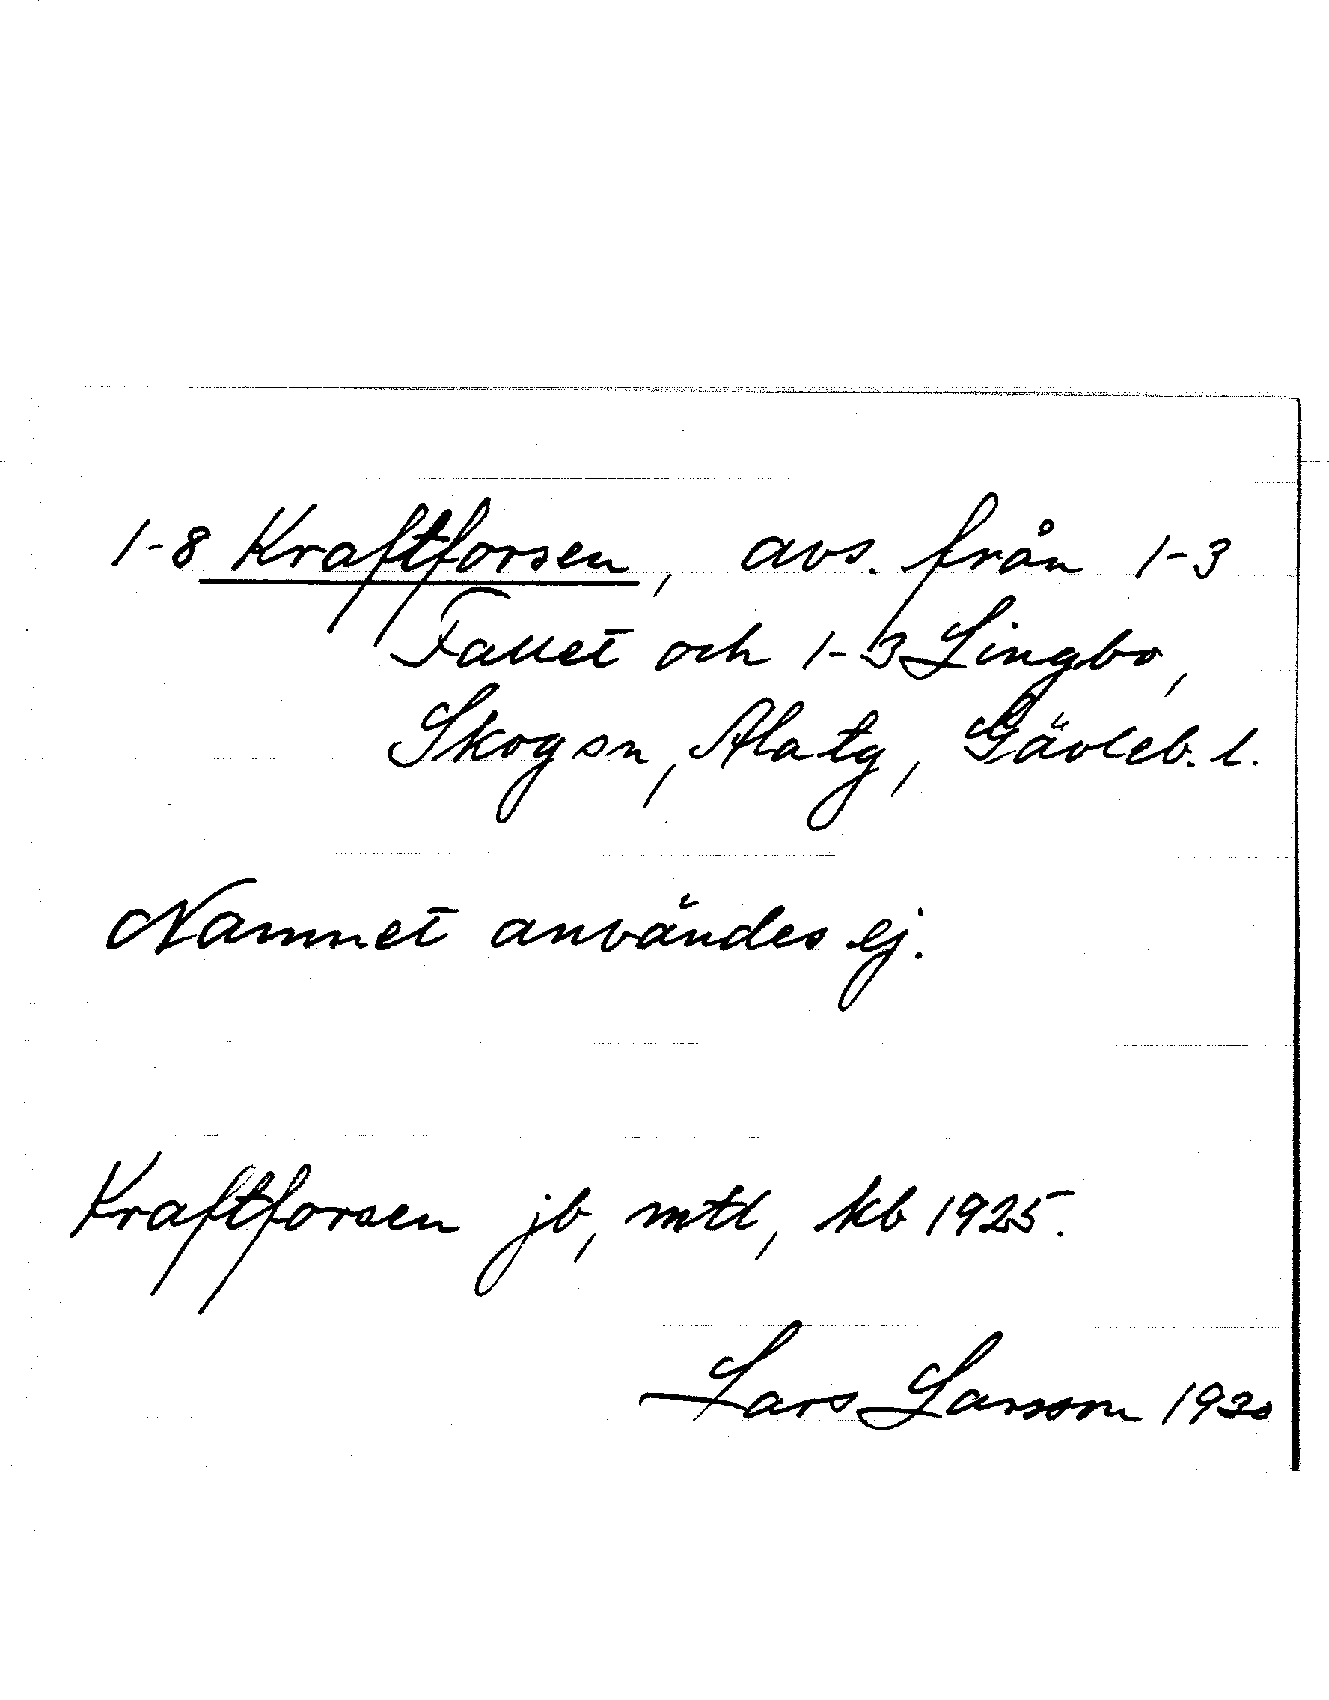 1-8 Kraftforsen, avs. från 1-3
Fallet och 1-3 Lingbo,
Skogsn, Alatg, Gävleb. l.
Namnet användes ej.
Kraftforsen jb, mtl, kb 1925.
Lars Larsson 1930